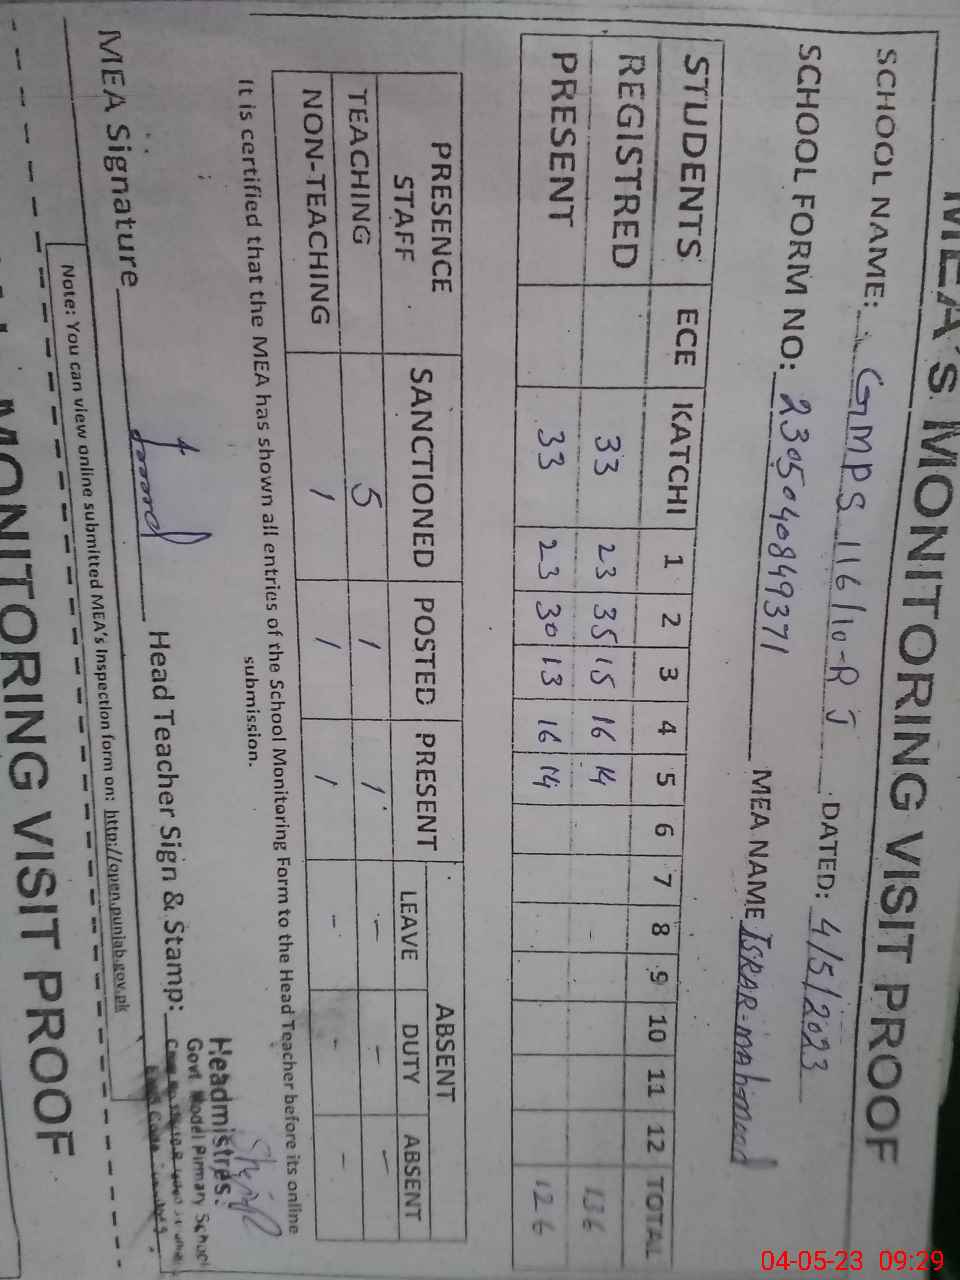 MEA'S MONITORING VISIT PROOF
SCHOOL NAME: GMPS 116/10-R J DATED: 4/5/2023
SCHOOL FORM NO: 2305040849371 MEA NAME ISRAR-mahmood
STUDENTS ECE KATCHI 1 2 3 4 5 6 7 8 9 10 11 12 TOTAL
REGISTRED 33 23 35 15 16 14 - 136
PRESENT 33 23 30 13 16 14 126
PRESENCE STAFF SANCTIONED POSTED PRESENT ABSENT
LEAVE DUTY ABSENT
TEACHING 5 1 1 - - -
NON-TEACHING 1 1 1 - - -
It is certified that the MEA has shown all entries of the School Monitoring Form to the Head Teacher before its online
submission.
MEA Signature Head Teacher Sign & Stamp:
Headmistres:
Govt Model Pirmary School
Note: You can view online submitted MEA's Inspection form on: http://open.punjab.gov.pk
MONITORING VISIT PROOF
04-05-23 09:29